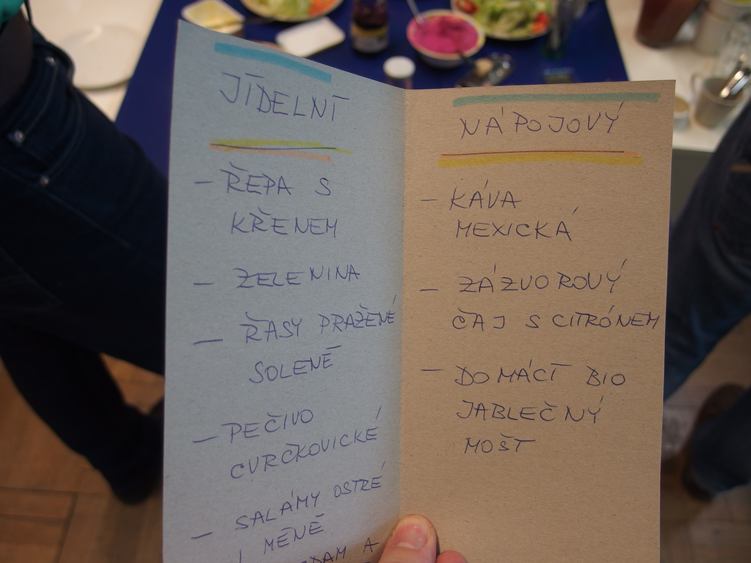 JÍDELNÍ
– ŘEPA S
KŘENEM
– ZELENINA
– ŘASY PRAŽENÉ
SOLENÉ
– PEČIVO
CVRČKOVICKÉ
– SALÁMY OSTRÉ
I MÉNĚ
A
NÁPOJOVÝ
– KÁVA
MEXICKÁ
– ZÁZVOROVÝ
ČAJ S CITRÓNEM
– DOMÁCÍ BIO
JABLEČNÝ
MOŠT